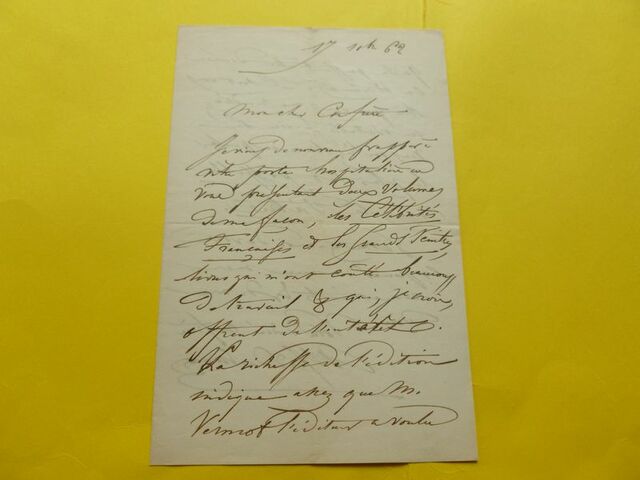 17 8bre 62
Mon cher Confrère
Je viens de nouveau frapper à
votre porte hospitalière en
vous présentant deux volumes
de ma façon, les Célébrités
Françaises et les Grands Peintres,
livres qui m'ont coûté beaucoup
de travail & qui, je crois,
offrent de l'intérêt.
La richesse de l'édition
indique assez que M.
Vermot l'éditeur a voulu